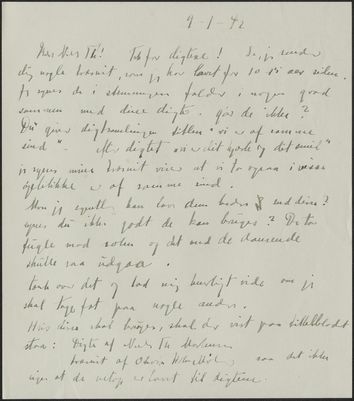 9-1-42
Kære Niels Th! Tak for digtene! Ja, jeg sender
dig nogle træsnit, som jeg har lavet for 10-15 aar siden.
Jeg synes de i stemningen falder i nogen grad
sammen med disse digte. gør de ikke?
Du giver digtsamlingen titlen "vi er af samme
sind". Efter digtet "mit hjerte og dit smil"
jeg synes mine træsnit viser at vi to ogsaa i visse
øjeblikke er af samme sind.
Mon jeg egentlig kan lave dem bedre end disse?
synes du ikke godt de kan bruges? De to
fugle mod solen og det med de dansende
skulle saa udgaa.
tænk over det og lad mig hurtigt vide om jeg
skal tage fat paa nogle andre.
Hvis disse skal bruges, skal der vist paa tittelbladet
staa: Digte af Niels Th. Mortensen
træsnit af saa det ikke
siges at de netop er lavet til digtene.